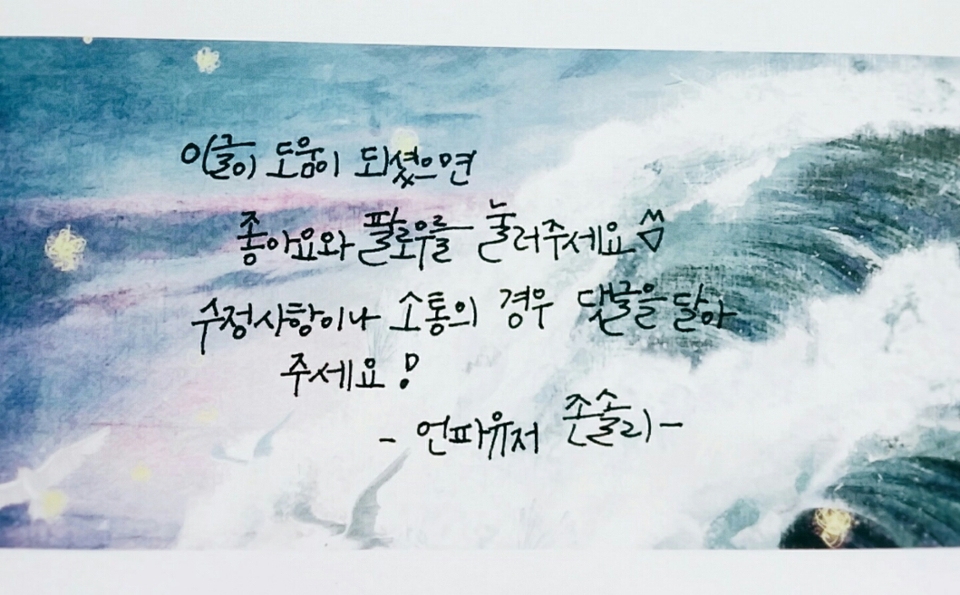 이 글이 도움이 되셨으면
좋아요와 팔로우를 눌러주세요
수정사항이나 소통의 경우 댓글을 달아
주세요!
- 언파유저 존솔리 -